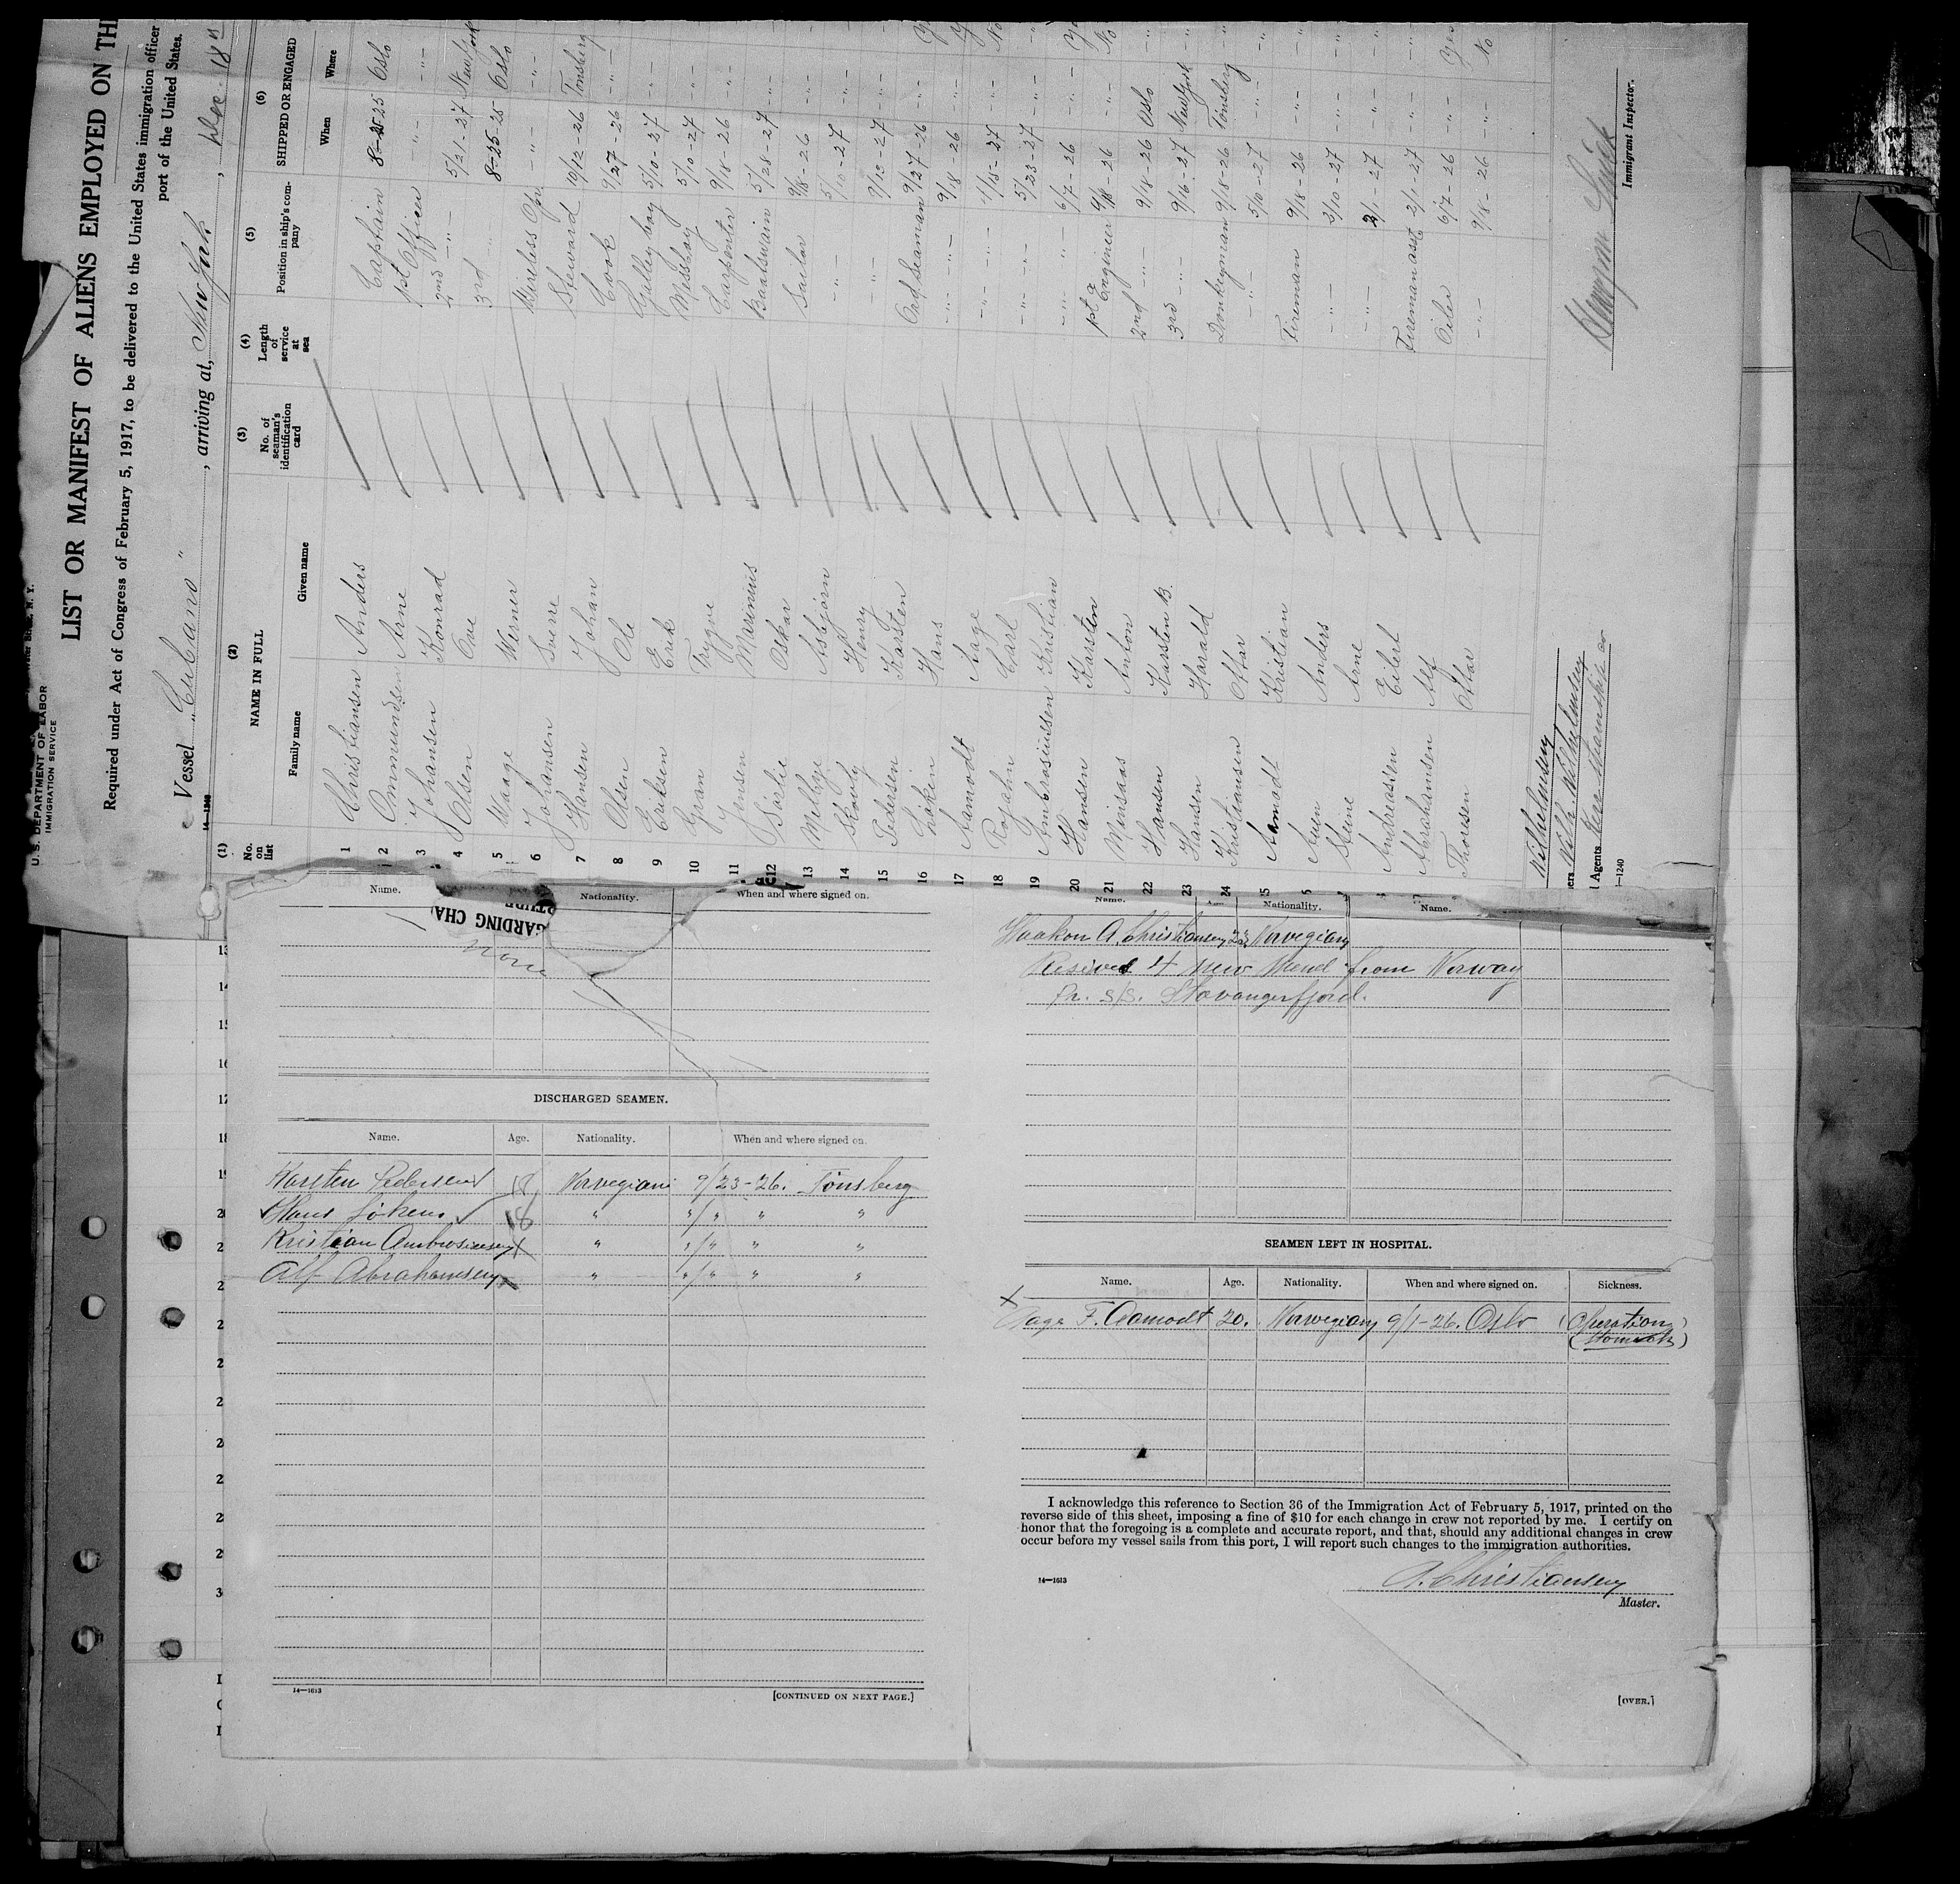 U. S. DEPARTMENT OF LABOR
IMMIGRATION SERVICE
LIST OR MANIFEST OF ALIENS EMPLOYED ON TH
Required under Act of Congress of February 5, 1917, to be delivered to the United States immigration officer
port of the United States.
Vessel "Cubano", arriving at, New York, Dec. 18th
14—1240
(1) No. on list (2) NAME IN FULL Family name Given name (3) No. of seaman's identification card (4) Length of service at sea (5) Position in ship's company (6) SHIPPED OR ENGAGED When Where
1 Christiansen Anders Captain 8-25-25 Oslo
2 Ommundsen Arne 1st Officer -"- -"-
3 Johansen Konrad 2nd -"- 5/21-27 New York
4 Olsen Ove 3rd 8-25-25 Oslo
5 Waage Werner Wireless Opr -"- -"-
6 Johansen Sverre Steward 10/12-26 Tönsberg
7 Hansen Johan Cook 9/27-26 -"-
8 Olsen Ole Galley boy 5/10-27 -"-
9 Eriksen Erik Messboy 5/10-27 -"-
10 Gran Trygve Carpenter 9/18-26 -"-
11 Jensen Marinius Boatswain 5/28-27 -"-
12 Sörlie Oskar Sailor 9/18-26 -"-
13 Melbye Asbjörn -"- 5/10-27 -"-
14 Skovly Henry -"- -"-
15 Pedersen Karsten Ord Seaman 9/27-26 -"-
16 Löken Hans -"- 9/18-26 -"-
17 Aamodt Aage -"- -"-
18 Rojahn Carl -"- 5/23-27 -"-
19 Ambrosiussen Kristian -"- 6/7-26 -"-
20 Hansen Karsten 1st Engineer 9/18-26 -"-
21 Anton 2nd 9/18-26 Oslo
22 Hansen Karsten B. 3rd -"- 9/16-27 New York
23 Hansen Harald Donkeyman 9/18-26 Tönsberg
24 Kristiansen Ottar -"- 5/10-27 -"-
25 Aamodt Kristian Fireman 9/18-26 -"-
Auen Anders -"- 3/10-27 -"-
Steine Arne -"- -"-
Andreasen Eilert Fireman asst 2/1-27 -"-
Abrahamsen Alf Oiler 6/7-26 -"- Yes
Thorsen Ottar -"- 9/18-26 -"- No
Wilhelmsen
Wilh. Wilhelmsen
Agents
Immigrant Inspector.
Name. Nationality. When and where signed on.
GARDING CHA
None
DISCHARGED SEAMEN.
Name. Age. Nationality. When and where signed on.
Karsten Pedersen 18 Norwegian 9/23-26. Tönsberg
Hans Löken 18 " "/" " "
Kristian Ambrosiussen " "/" " "
Alf Abrahamsen " "/" " "
14—1613
[CONTINUED ON NEXT PAGE.]
Name. Age. Nationality. Name.
Haakon A. Christiansen 23 Norwegian
Resived 4 new Mend from Norway
pr. S/S. Stavangerfjord.
SEAMEN LEFT IN HOSPITAL.
Name. Age. Nationality. When and where signed on. Sickness.
Aage F. Aamodt 20. Norwegian 9/1-26. Oslo (Operation)
(Stomach)
I acknowledge this reference to Section 36 of the Immigration Act of February 5, 1917, printed on the
reverse side of this sheet, imposing a fine of $10 for each change in crew not reported by me. I certify on
honor that the foregoing is a complete and accurate report, and that, should any additional changes in crew
occur before my vessel sails from this port, I will report such changes to the immigration authorities.
A. Christiansen
14—1613
Master.
[OVER.]